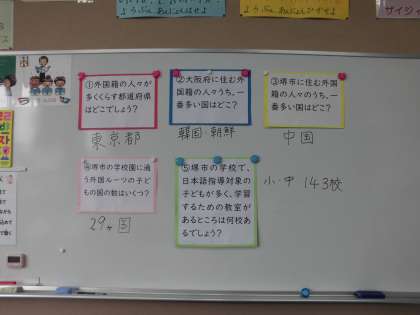 ①外国籍の人々が
多くくらす都道府県
はどこでしょう？
東京都
②大阪府に住む外国
籍の人々のうち、一
番多い国はどこ？
韓国・朝鮮
③堺市に住む外国
籍の人々のうち、一
番多い国はどこ？
中国
④堺市の学校園に通
う外国ルーツの子ど
もの国の数はいくつ？
29ヶ国
⑤堺市の学校で、
日本語指導対象の
子どもが多く、学習
するための教室が
あるところは何校あ
るでしょう？
小・中 143校